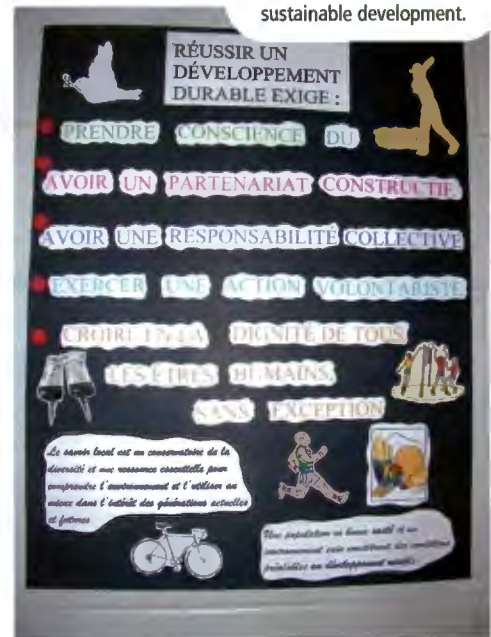 sustainable development.
RÉUSSIR UN
DÉVELOPPEMENT
DURABLE EXIGE :
PRENDRE CONSCIENCE DU
AVOIR UN PARTENARIAT CONSTRUCTIF
AVOIR UNE RESPONSABILITÉ COLLECTIVE
EXERCER UNE ACTION VOLONTARISTE
CROIRE EN LA DIGNITÉ DE TOUS
LES ÊTRES HUMAINS,
SANS EXCEPTION
Le savoir local est un conservatoire de la
diversité et une ressource essentielle pour
comprendre l'environnement et l'utiliser au
mieux dans l'intérêt des générations actuelles
et futures
Une population en bonne santé et un
environnement sain constituent des conditions
préalables au développement